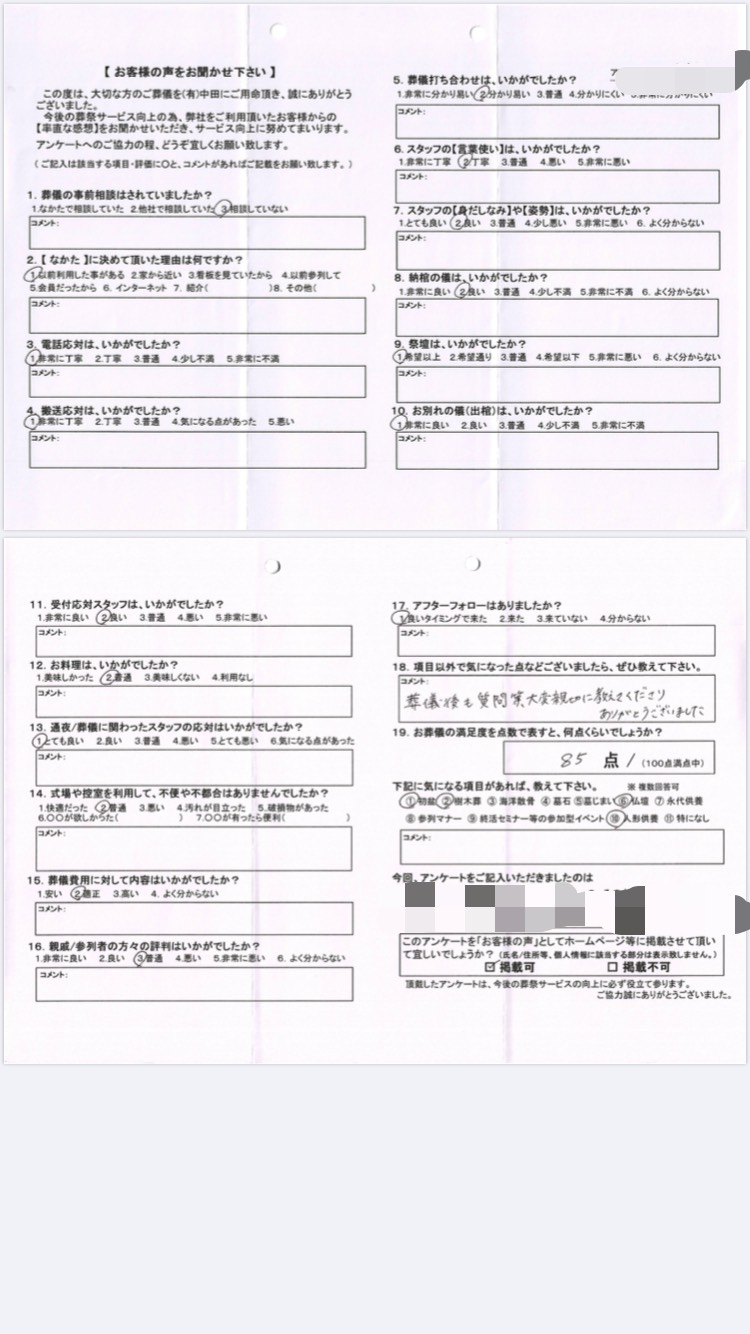 【 お客様の声をお聞かせ下さい 】
この度は、大切な方のご葬儀を(有)中田にご用命頂き、誠にありがとう
ございました。
今後の葬祭サービス向上の為、弊社をご利用頂いたお客様からの
【率直な感想】をお聞かせいただき、サービス向上に努めてまいります。
アンケートへのご協力の程、どうぞ宜しくお願い致します。
( ご記入は該当する項目・評価に〇と、コメントがあればご記載をお願い致します。 )
1. 葬儀の事前相談はされていましたか?
1.なかたで相談していた 2.他社で相談していた 3.相談していない
コメント:
2.【 なかた 】に決めて頂いた理由は何ですか?
1.以前利用した事がある 2.家から近い 3.看板を見ていたから 4.以前参列して
5.会員だったから 6. インターネット 7. 紹介( )8. その他( )
コメント:
3. 電話応対は、いかがでしたか?
1.非常に丁寧 2.丁寧 3.普通 4.少し不満 5.非常に不満
コメント:
4. 搬送応対は、いかがでしたか?
1.非常に丁寧 2.丁寧 3.普通 4.気になる点があった 5.悪い
コメント:
ア
5. 葬儀打ち合わせは、いかがでしたか?
1.非常に分かり易い 2.分かり易い 3.普通 4.分かりにくい 5.非常に分かりにくい
コメント:
6. スタッフの【言葉使い】は、いかがでしたか?
1.非常に丁寧 2.丁寧 3.普通 4.悪い 5.非常に悪い
コメント:
7. スタッフの【身だしなみ】や【姿勢】は、いかがでしたか?
1.とても良い 2.良い 3.普通 4.少し悪い 5.非常に悪い 6. よく分からない
コメント:
8. 納棺の儀は、いかがでしたか?
1.非常に良い 2.良い 3.普通 4.少し不満 5.非常に不満 6. よく分からない
コメント:
9. 祭壇は、いかがでしたか?
1.希望以上 2.希望通り 3.普通 4.希望以下 5.非常に悪い 6. よく分からない
コメント:
10. お別れの儀(出棺)は、いかがでしたか?
1.非常に良い 2.良い 3.普通 4.少し不満 5.非常に不満
コメント:
11. 受付応対スタッフは、いかがでしたか?
1.非常に良い 2.良い 3.普通 4.悪い 5.非常に悪い
コメント:
12. お料理は、いかがでしたか?
1.美味しかった 2.普通 3.美味しくない 4.利用なし
コメント:
13. 通夜/葬儀に関わったスタッフの応対はいかがでしたか?
1.とても良い 2.良い 3.普通 4.悪い 5.とても悪い 6.気になる点があった
コメント:
14. 式場や控室を利用して、不便や不都合はありませんでしたか?
1.快適だった 2.普通 3.悪い 4.汚れが目立った 5.破損物があった
6.〇〇が欲しかった( ) 7.〇〇が有ったら便利( )
コメント:
15. 葬儀費用に対して内容はいかがでしたか?
1.安い 2.適正 3.高い 4. よく分からない
コメント:
16. 親戚/参列者の方々の評判はいかがでしたか?
1.非常に良い 2.良い 3.普通 4.悪い 5.非常に悪い 6. よく分からない
コメント:
17. アフターフォローはありましたか?
1.良いタイミングで来た 2.来た 3.来ていない 4.分からない
コメント:
18. 項目以外で気になった点などございましたら、ぜひ教えて下さい。
コメント:
葬儀後も質問等大変親切に教えてくださり
ありがとうございました
19. お葬儀の満足度を点数で表すと、何点くらいでしょうか?
85 点 / (100点満点中)
下記に気になる項目があれば、教えて下さい。 ※ 複数回答可
① 初盆 ② 樹木葬 ③ 海洋散骨 ④ 墓石 ⑤ 墓じまい ⑥ 仏壇 ⑦ 永代供養
⑧ 参列マナー ⑨ 終活セミナー等の参加型イベント ⑩ 人形供養 ⑪ 特になし
コメント:
今回、アンケートをご記入いただきましたのは
このアンケートを「お客様の声」としてホームページ等に掲載させて頂い
て宜しいでしょうか? (氏名/住所等、個人情報に該当する部分は表示致しません。)
☑ 掲載可 □ 掲載不可
頂戴したアンケートは、今後の葬祭サービスの向上に必ず役立て参ります。
ご協力誠にありがとうございました。